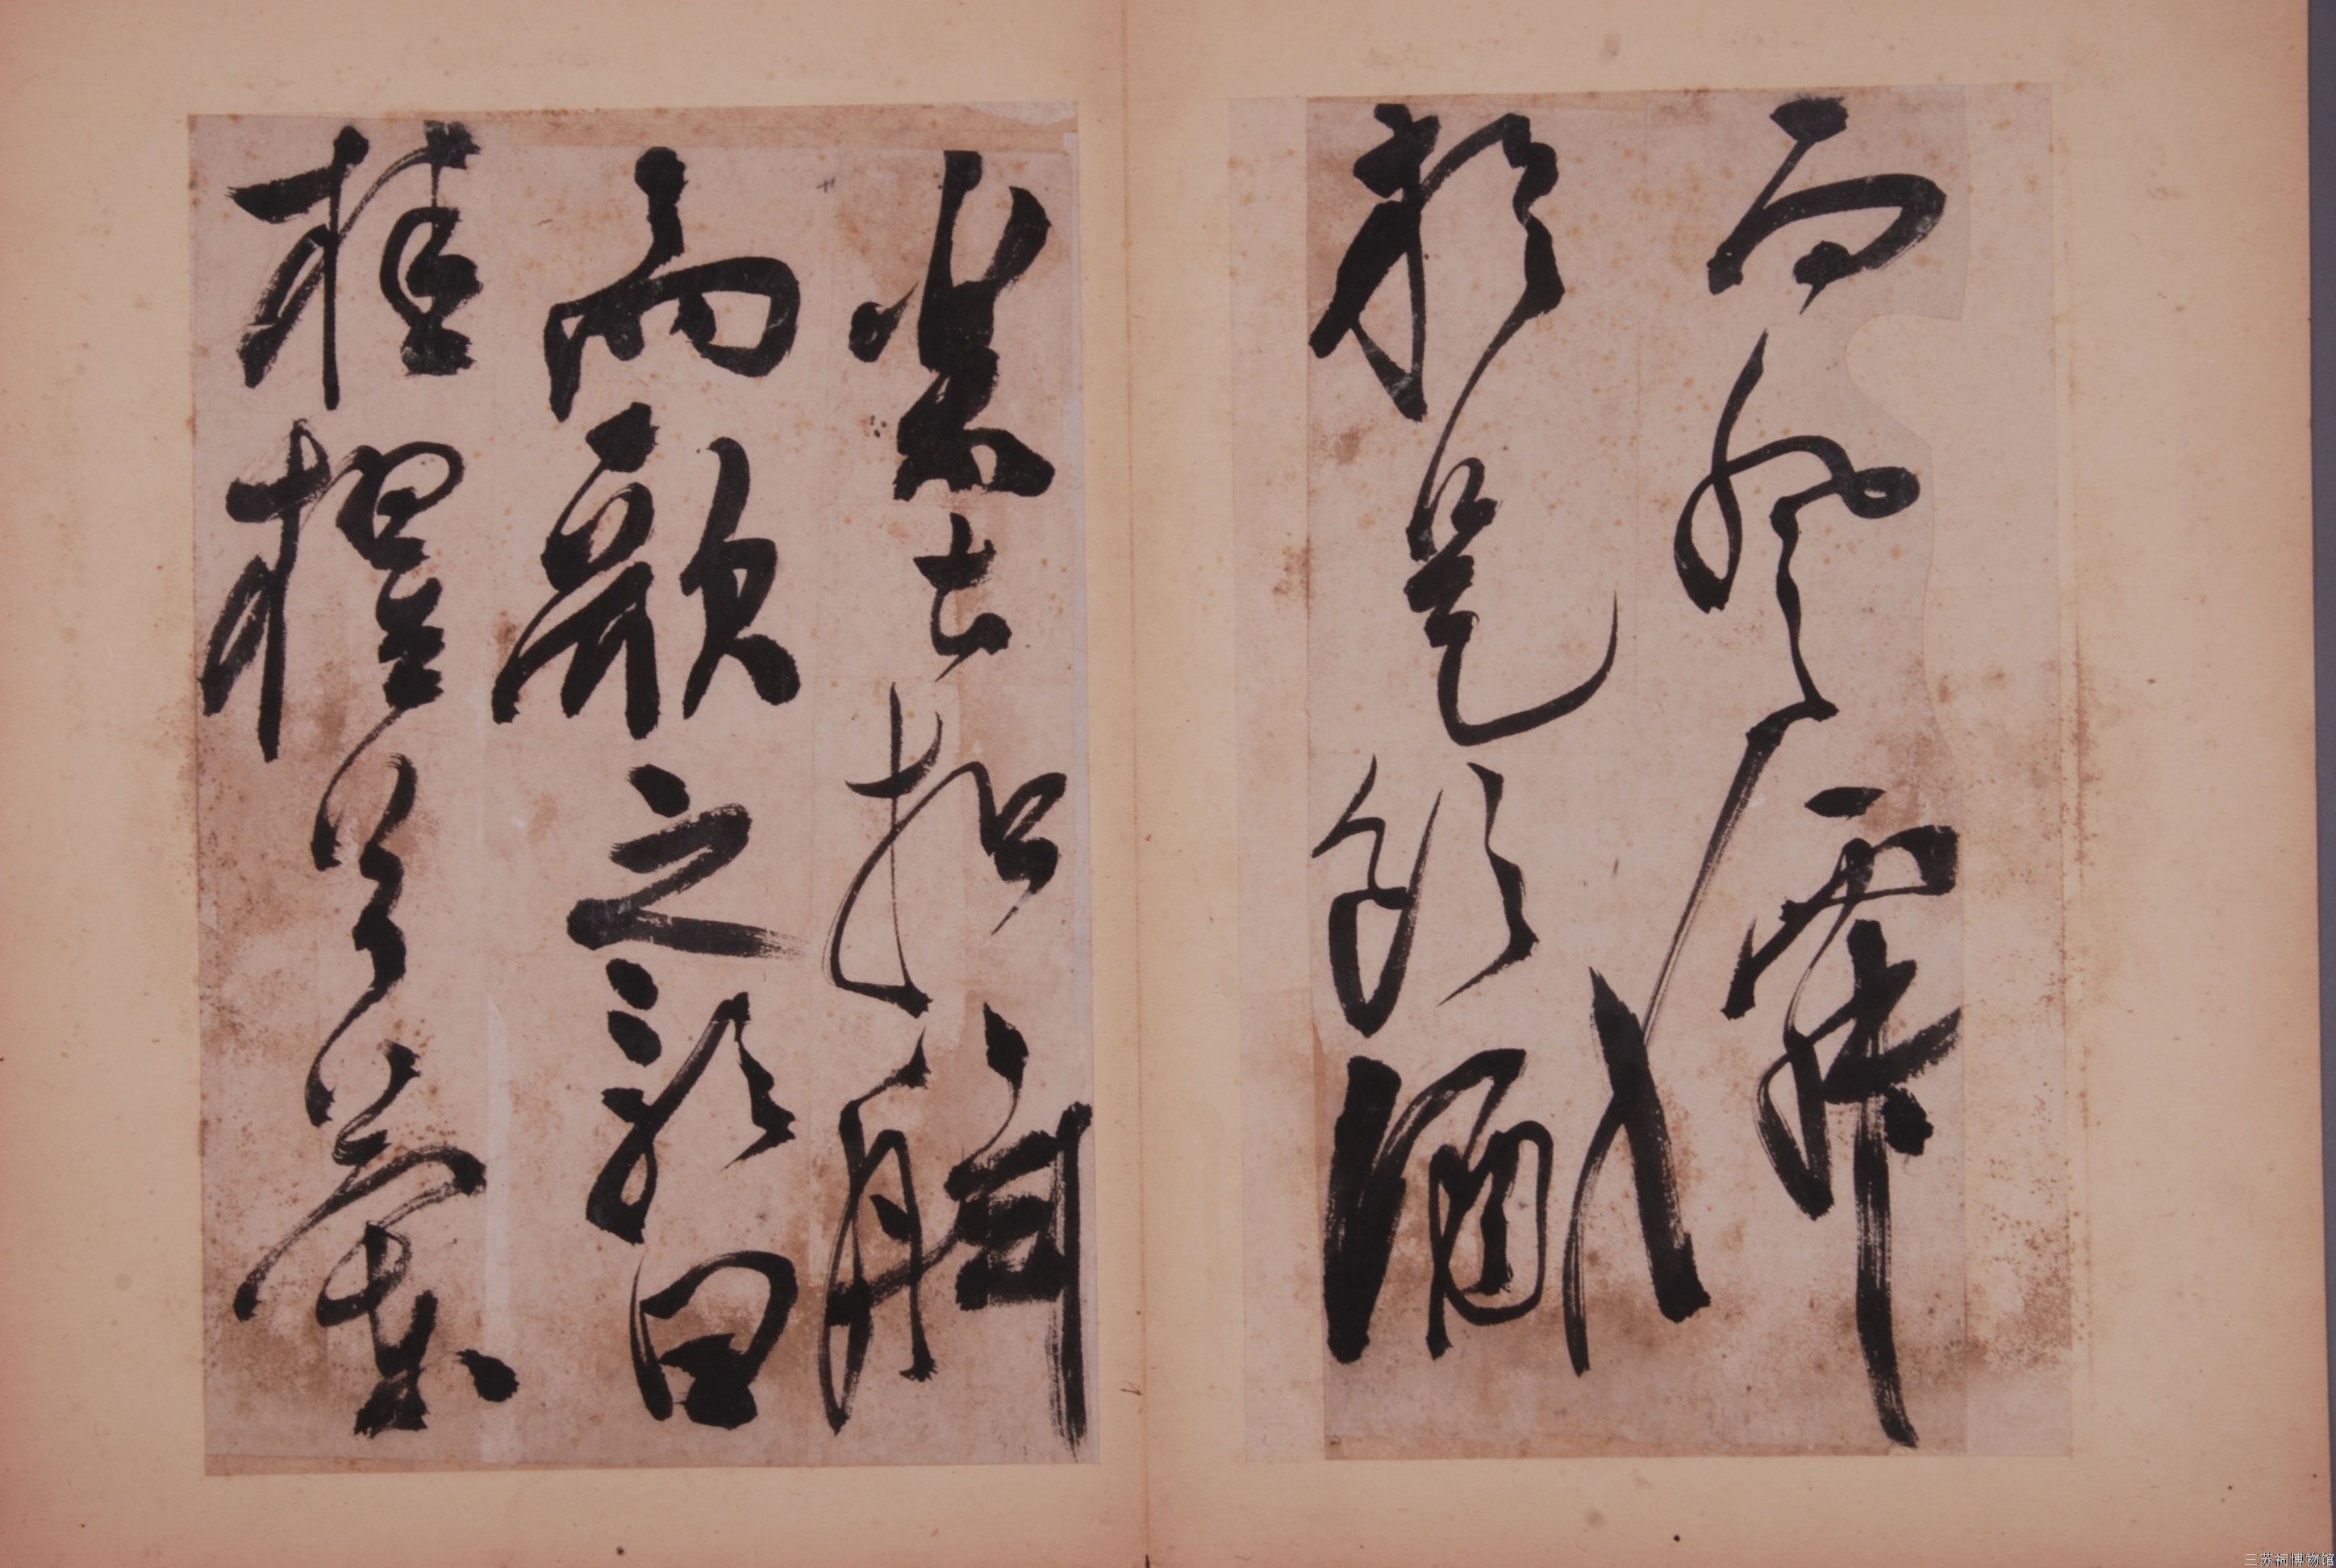 而登僊
於是飲酒
樂甚扣舷
而歌之歌曰
桂櫂兮蘭
三苏祠博物馆